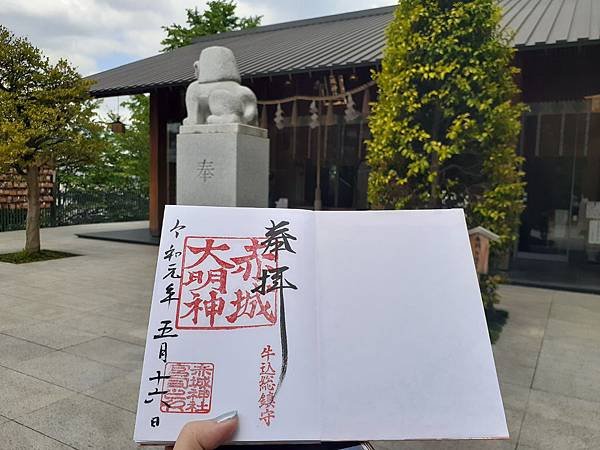 奉
奉拝
赤城
大明神
牛込総鎮守
赤城神社
宮司之印
令和元年五月十六日